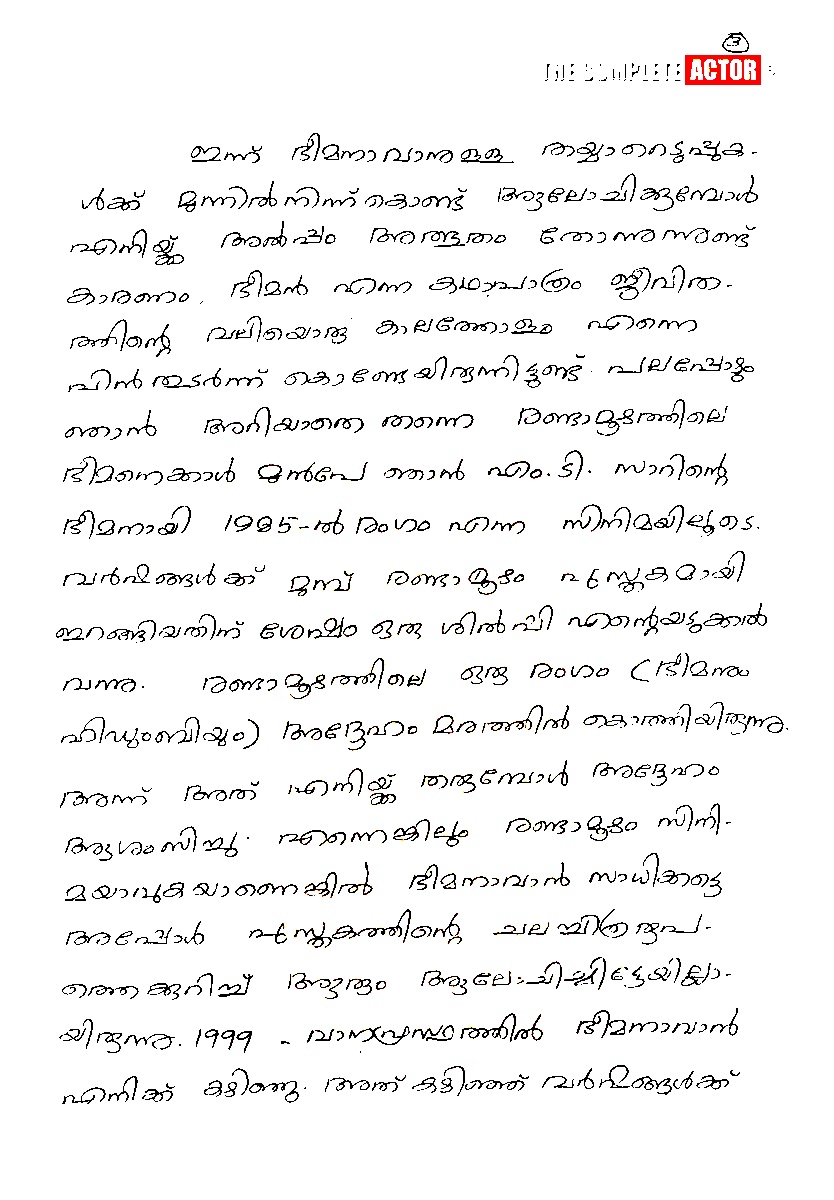 3
THE COMPLETE ACTOR
ഇന്ന് ഭീമനാവാനുള്ള തയ്യാറെടുപ്പുക-
ൾക്ക് മുന്നിൽ നിന്ന് കൊണ്ട് ആലോചിക്കുമ്പോൾ
എനിയ്ക്ക് അൽപ്പം അത്ഭുതം തോന്നുന്നുണ്ട്
കാരണം, ഭീമൻ എന്ന കഥാപാത്രം ജീവിത-
ത്തിന്റെ വലിയൊരു കാലത്തോളം എന്നെ
പിൻതുടർന്ന് കൊണ്ടേയിരുന്നിട്ടുണ്ട്. പലപ്പോഴും
ഞാൻ അറിയാതെ തന്നെ രണ്ടാമൂഴത്തിലെ
ഭീമനെക്കാൾ മുൻപേ ഞാൻ എം.ടി. സാറിന്റെ
ഭീമനായി 1985-ൽ രംഗം എന്ന സിനിമയിലൂടെ.
വർഷങ്ങൾക്ക് മുമ്പ് രണ്ടാമൂഴം പുസ്തകമായി
ഇറങ്ങിയതിന് ശേഷം ഒരു ശിൽപ്പി എന്റെയടുക്കൽ
വന്നു. രണ്ടാമൂഴത്തിലെ ഒരു രംഗം (ഭീമനും
ഹിഡുംബിയും) അദ്ദേഹം മരത്തിൽ കൊത്തിയിരുന്നു.
അന്ന് അത് എനിയ്ക്ക് തരുമ്പോൾ അദ്ദേഹം
ആശംസിച്ചു. എന്നെങ്കിലും രണ്ടാമൂഴം സിനി-
മയാവുകയാണെങ്കിൽ ഭീമനാവാൻ സാധിക്കട്ടെ
അപ്പോൾ പുസ്തകത്തിന്റെ ചലച്ചിത്രരൂപ-
ത്തെക്കുറിച്ച് ആരും ആലോചിച്ചിട്ടേയില്ലാ-
യിരുന്നു. 1999 - വാനപ്രസ്ഥത്തിൽ ഭീമനാവാൻ
എനിക്ക് കഴിഞ്ഞു. അത് കഴിഞ്ഞ് വർഷങ്ങൾക്ക്